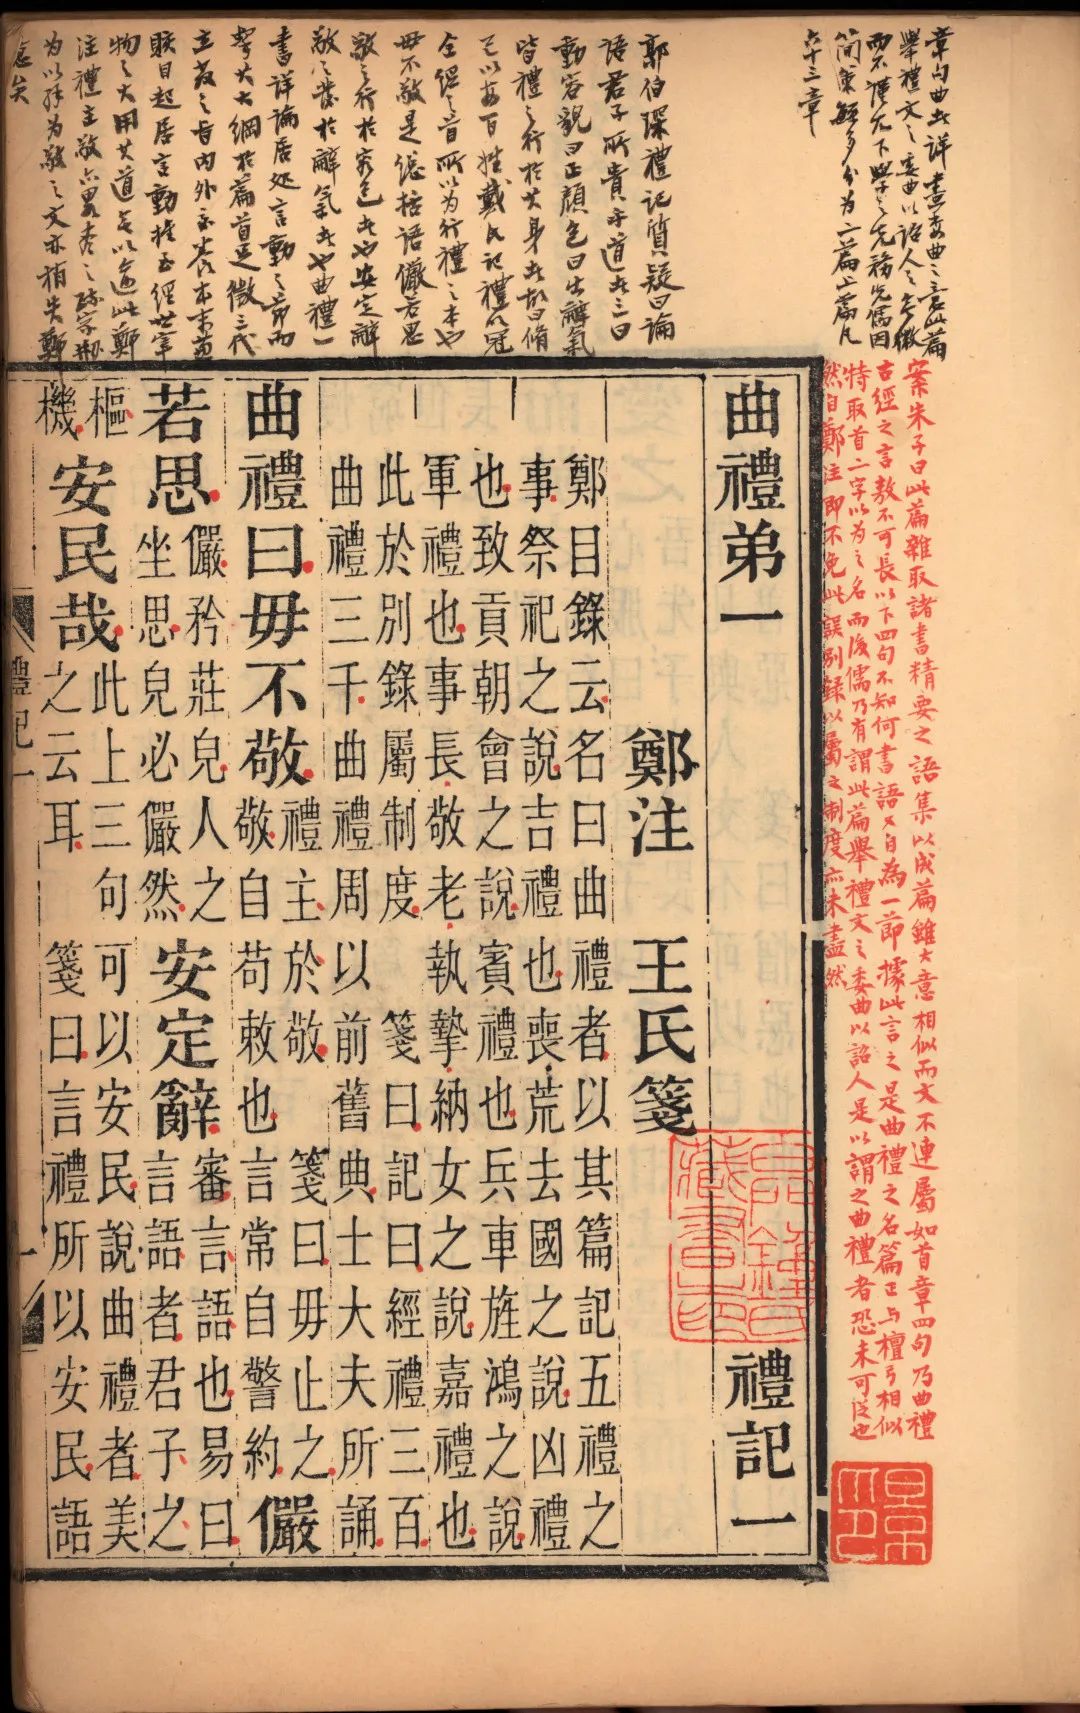 章句曲者詳盡委曲之意此篇
舉禮文之委曲以詔人之
而不謹尤下學之先務先儒因
簡策繁多分为二篇上篇凡
六十三章
郭伯琛禮記質疑曰論
語君子所貴乎道者三曰
動容貌曰正顏色曰出辭氣
皆禮之行於其身者故曰脩
己以安百姓戴氏記禮以冠
全經之首所以为行禮之本也
毋不敬是總括語儼若思
敬之行於容色者也安定辭
敬之發於辭氣者也曲禮一
書詳論居处言動之節而
挈其大綱於篇首足徵三代
立教之旨內外交養本末兼
賅自起居言動推至經世宰
物之大用其道無以逾此鄭
注禮主敬亦畧本之疏家
为以拜为敬之文亦稍失鄭
意矣
案朱子曰此篇雜取諸書精要之語集以成篇雖大意相似而文不連屬如首章四句乃曲禮
古經之言敖不可長以下四句不知何書語又自為一節據此言之是曲禮之名篇正与檀弓相似
特取首二字以為之名而後儒乃有謂此篇舉禮文之委曲以詔人是以謂之曲禮者恐未可從也
然自鄭注即不免此誤別録以屬之制度亦未盡然
曲禮弟一 禮記一
鄭注 王氏箋
鄭目錄云名曰曲禮者以其篇記五禮之
事祭祀之說吉禮也喪荒去國之說凶禮
也致貢朝會之說賓禮也兵車旌鴻之說
軍禮也事長敬老執摯納女之說嘉禮也
此於別錄屬制度 箋曰記曰經禮三百
曲禮三千曲禮周以前舊典士大夫所誦
曲禮曰毋不敬禮主於敬 箋曰毋止之敬自苟敕也言常自警約儼
若思儼矜莊皃人之坐思皃必儼然安定辭審言語也易曰言語者君子之
樞機安民哉此上三句可以安民說曲禮者美之云耳 箋曰言禮所以安民語
禮記一